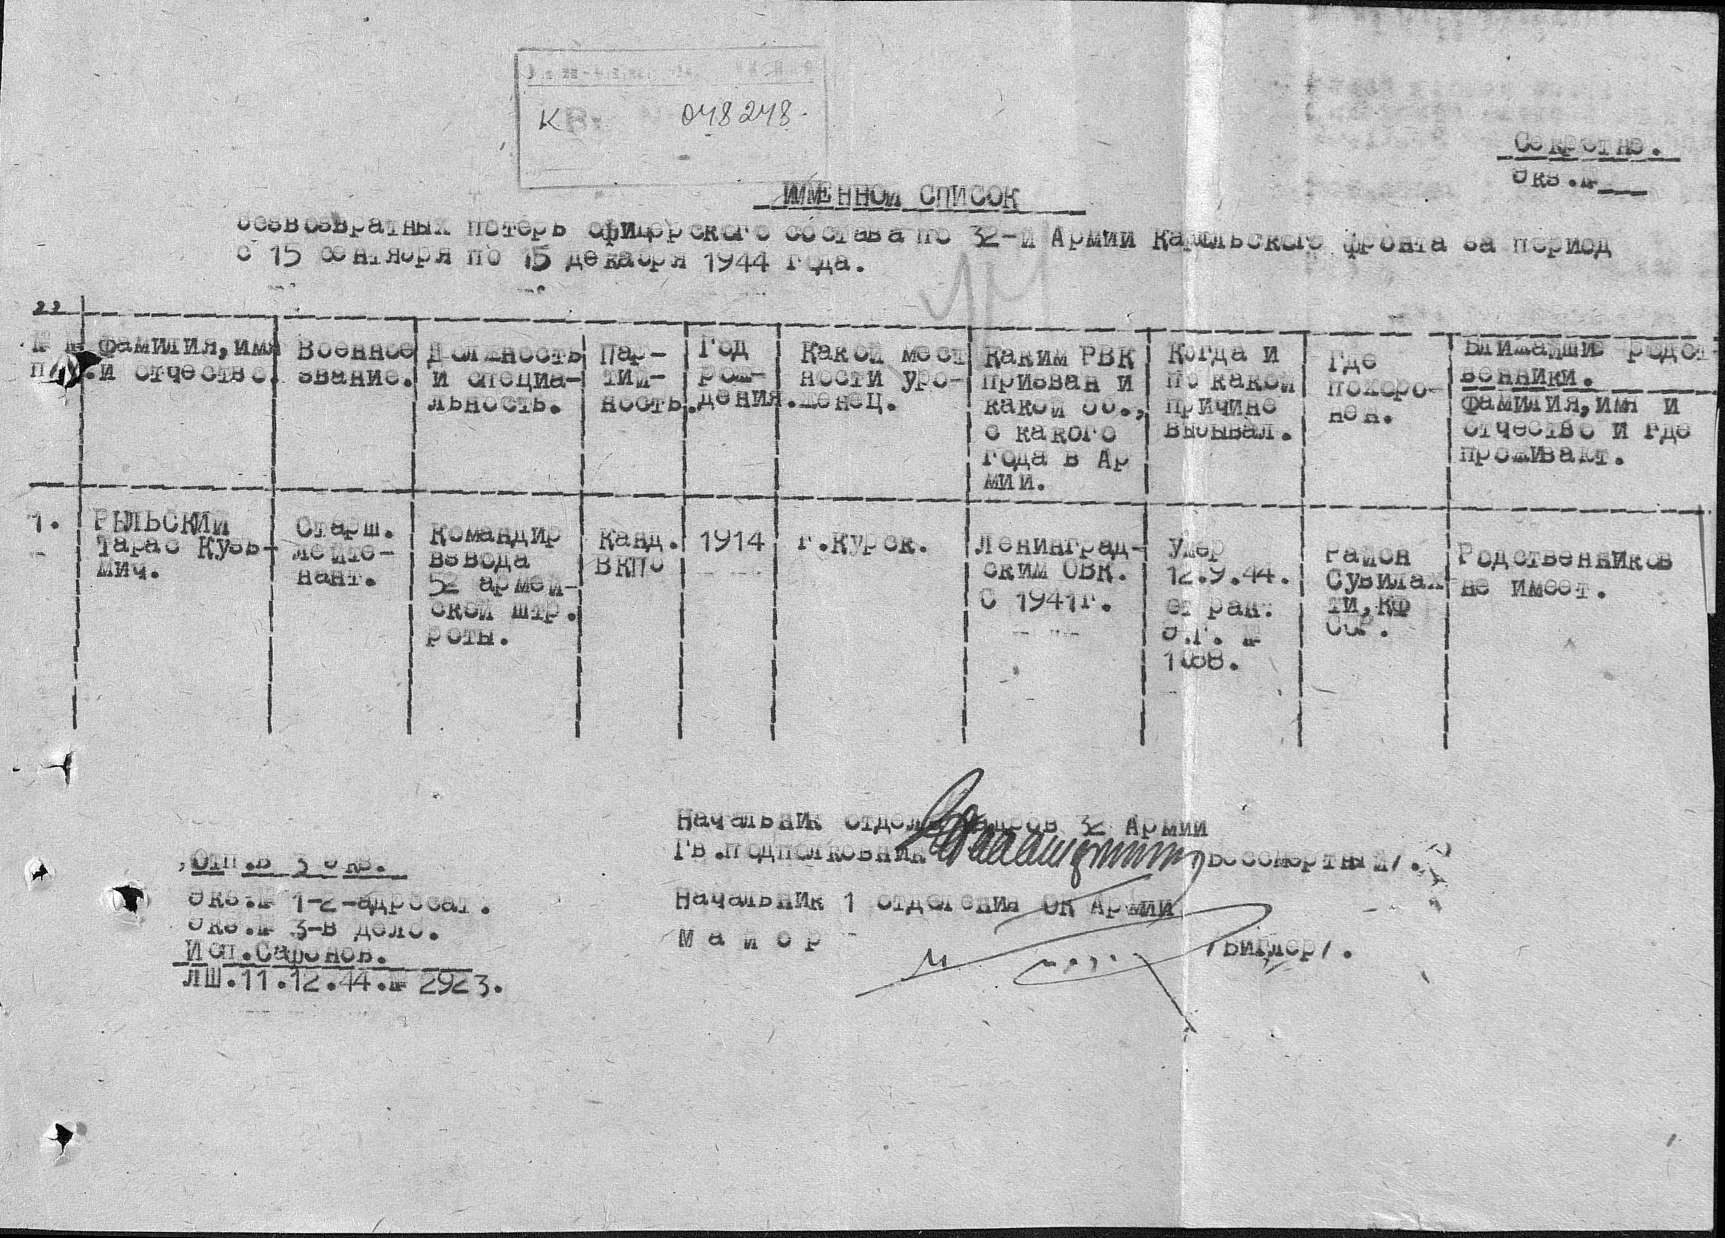 К 048248.
Секретно.
Экз.№
ИМЕННОЙ СПИСОК
безвозвратных потерь офицерского состава по 32-й Армии Карельского фронта за период
с 15 сентября по 15 декабря 1944 года.
№ № п/п.
Фамилия, имя
и отчество.
Военное
звание.
Должность
и специа-
льность.
Пар-
тий-
ность.
Год
рож-
дения.
Какой мест
ности уро-
женец.
Каким РВК
призван и
какой об.,
с какого
года в Ар
мии.
Когда и
по какой
причине
выбывал.
Где
похоро-
нен.
Ближайшие родст-
венники.
Фамилия, имя и
отчество и где
проживают.
1.
РЫЛЬСКИЙ
Тарас Кузь-
мич.
Старш.
лейте-
нант.
Командир
взвода
52 армей-
ской штр.
роты.
Канд.
ВКПб
1914
г.Курск.
Ленинград-
ским ОВК.
С 1941г.
Умер
12.9.44.
от ран:
Э.Г. №
1088.
Район
Сувилах
ти, КФ
ССР.
Родственников
не имеет.
Начальник отдела кадров 32 Армии
Гв.подполковник /Бессмертный/.
Начальник 1 отделения ОК Армии
М а й о р /Биглер/.
Отп.в 3 экз.
Экз.№ 1-2-адресат.
Экз.№ 3-в дело.
Исп.Сафонов.
ЛШ.11.12.44.№ 2923.